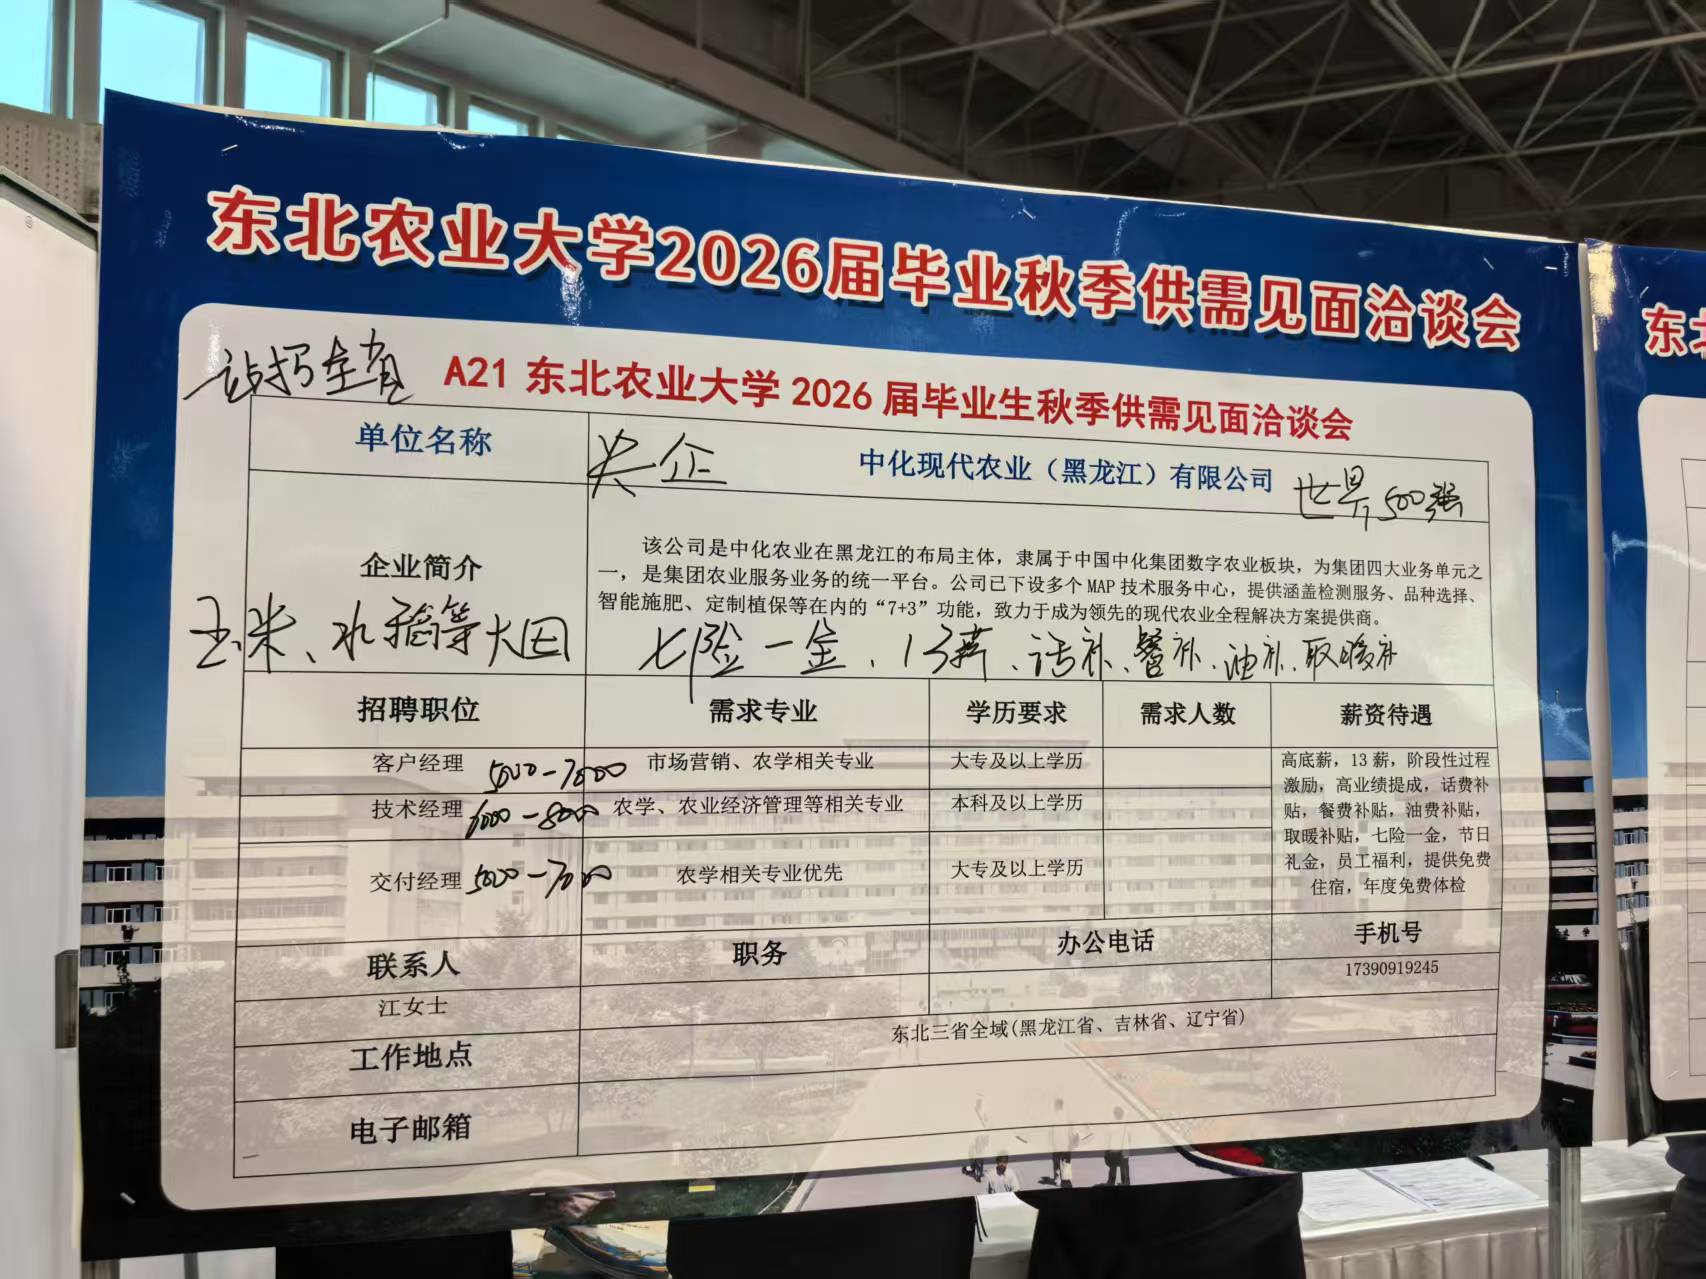 东北农业大学2026届毕业秋季供需见面洽谈会
A21 东北农业大学 2026 届毕业生秋季供需见面洽谈会
单位名称
央企
中化现代农业（黑龙江）有限公司
世界500强
企业简介
该公司是中化农业在黑龙江的布局主体，隶属于中国中化集团数字农业板块，为集团四大业务单元之
一，是集团农业服务业务的统一平台。公司已下设多个 MAP 技术服务中心，提供涵盖检测服务、品种选择、
智能施肥、定制植保等在内的“7+3”功能，致力于成为领先的现代农业全程解决方案提供商。
玉米、水稻等大田
七险一金、13薪、话补、餐补、油补、取暖补
招聘职位 需求专业 学历要求 需求人数 薪资待遇
客户经理 5000-7000 市场营销、农学相关专业 大专及以上学历
技术经理 6000-8000 农学、农业经济管理等相关专业 本科及以上学历
交付经理 5000-7000 农学相关专业优先 大专及以上学历
高底薪，13 薪，阶段性过程
激励，高业绩提成，话费补
贴，餐费补贴，油费补贴，
取暖补贴，七险一金，节日
礼金，员工福利，提供免费
住宿，年度免费体检
联系人 职务 办公电话 手机号
江女士 17390919245
工作地点 东北三省全域(黑龙江省、吉林省、辽宁省)
电子邮箱
东北